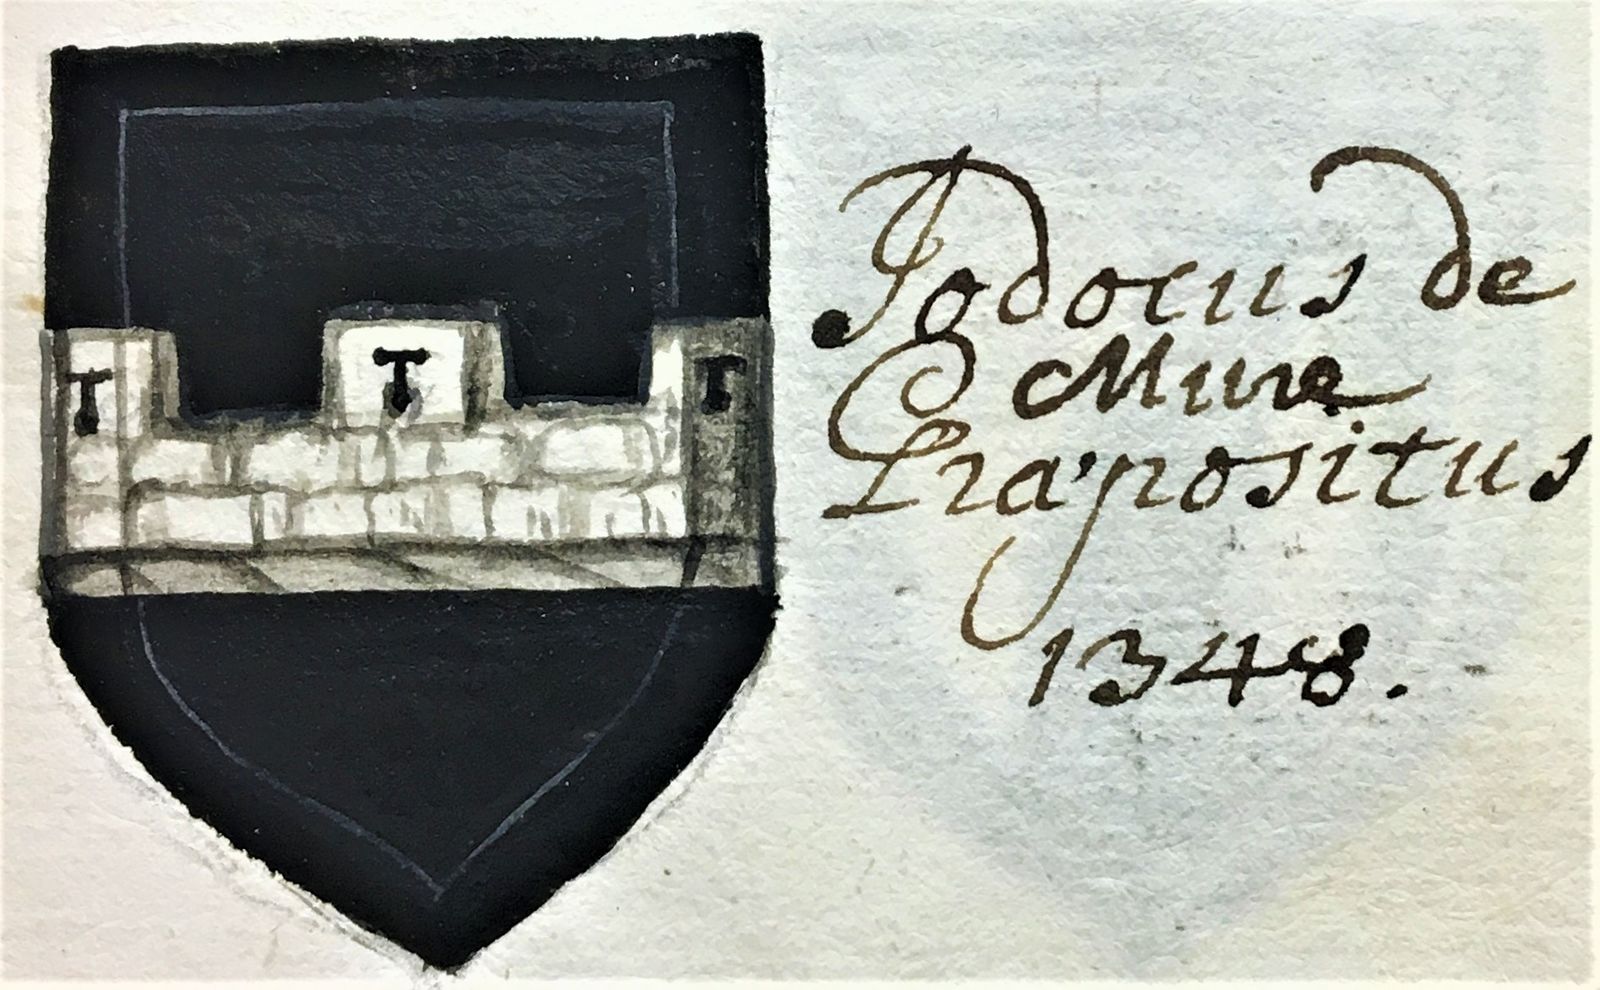 Jodocus de
Mure
Præpositus
1348.